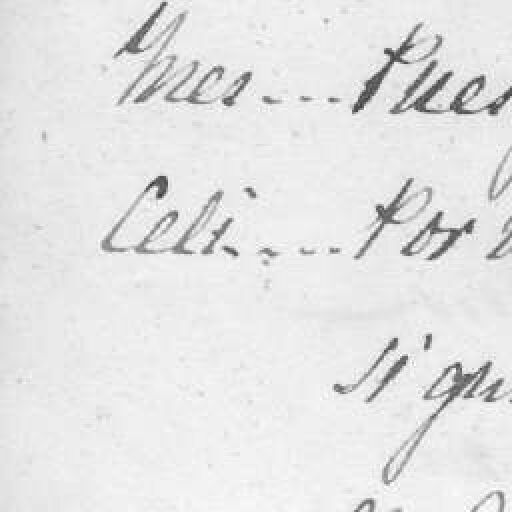 Ynes.... Pues
Celi..... Por
si qu